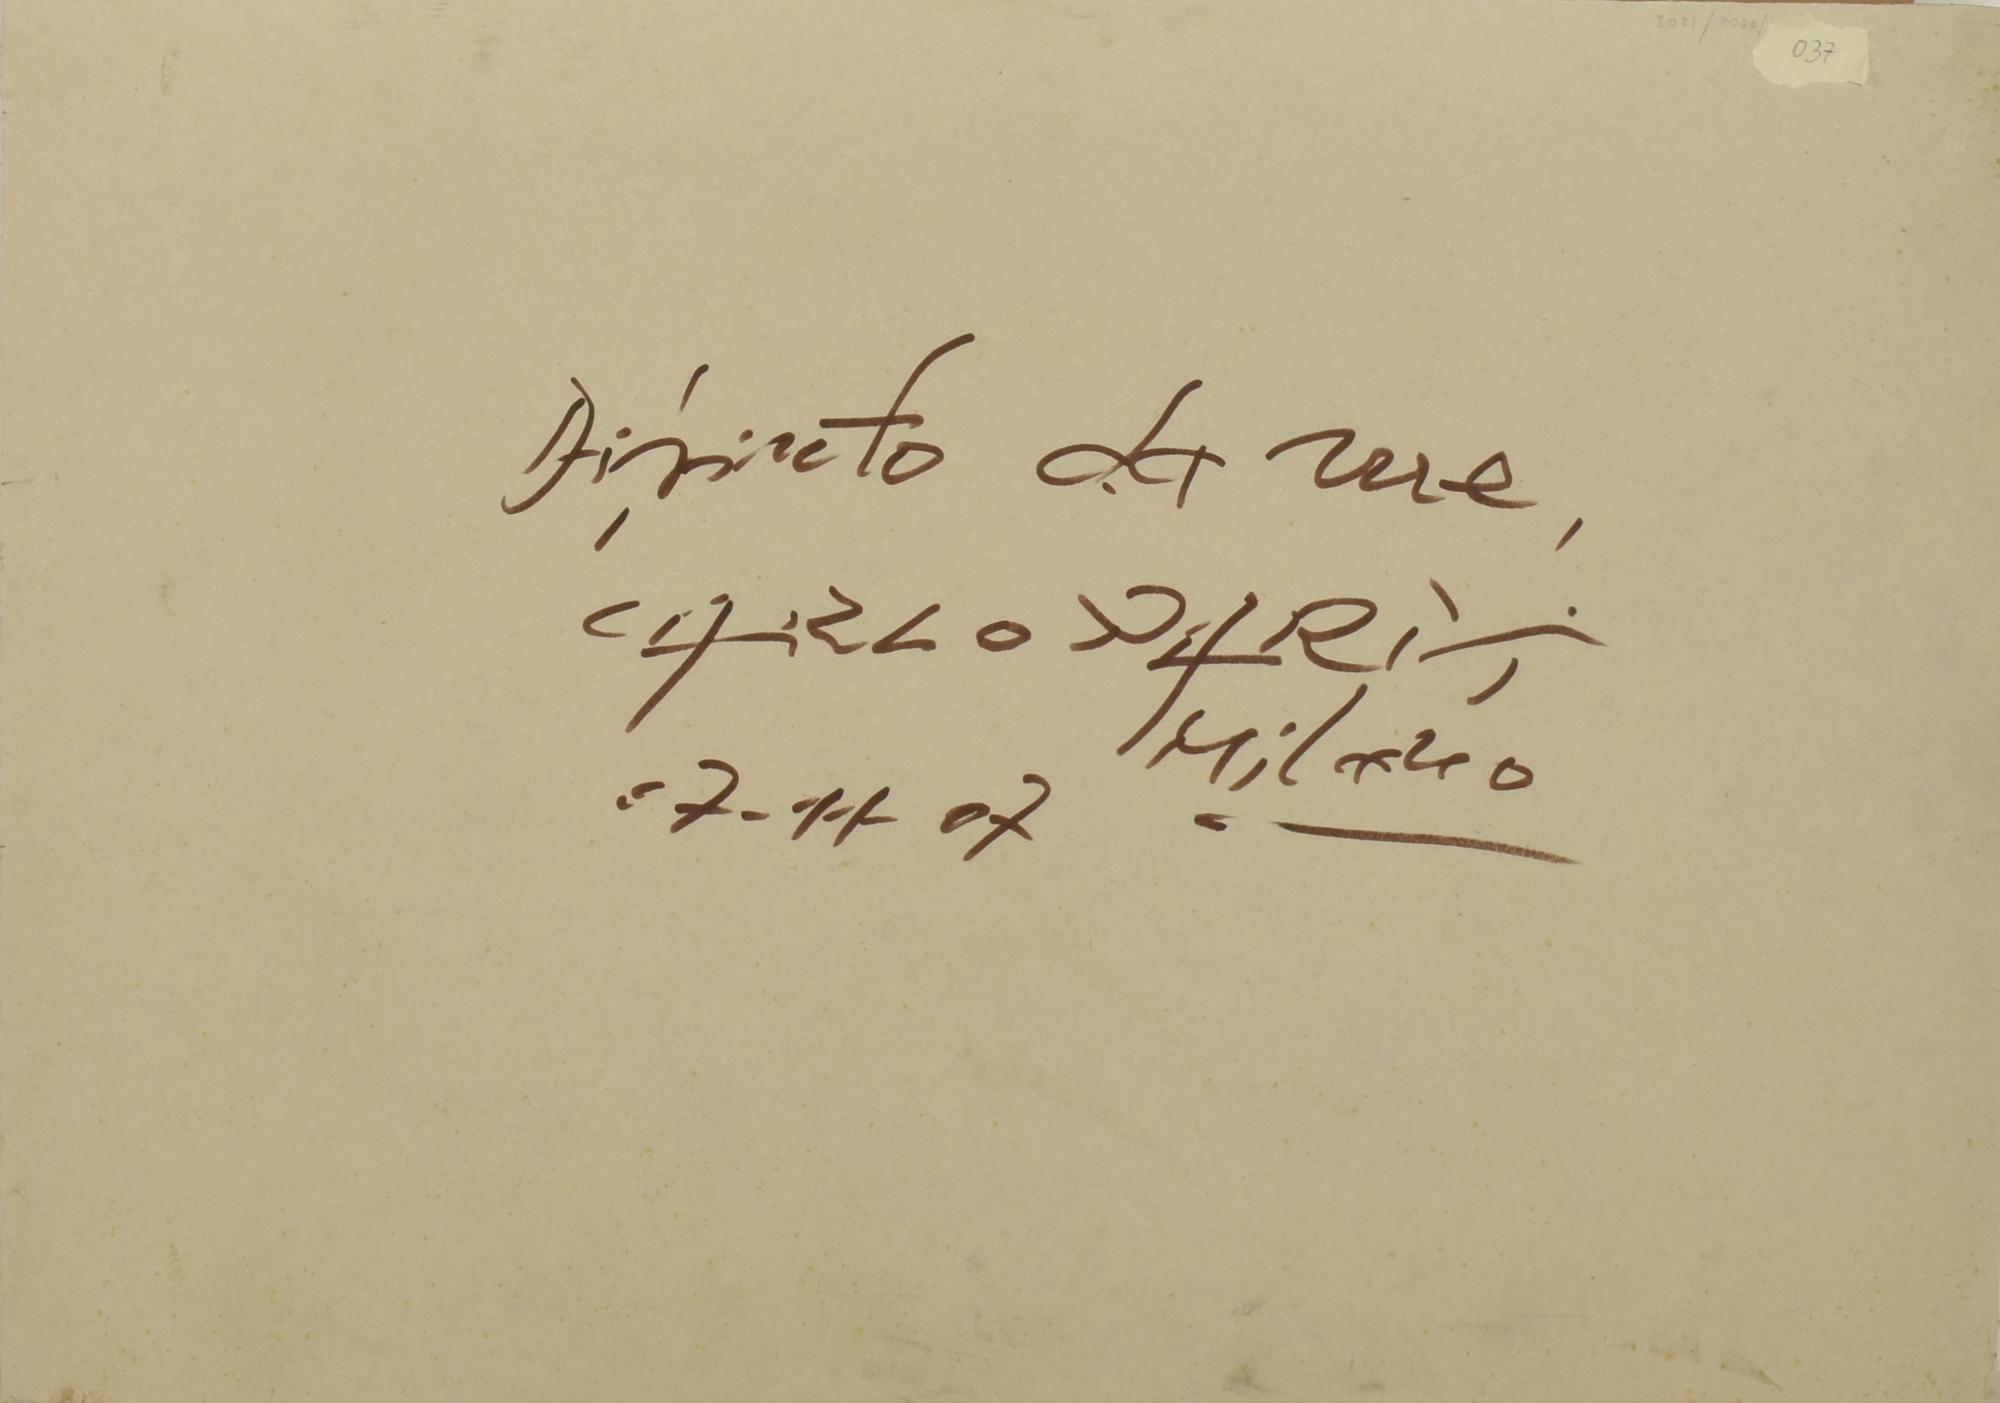 2021/0060/
037
Dipinto da me,
CARLO DARIX,
Milano
"7-11 07 "